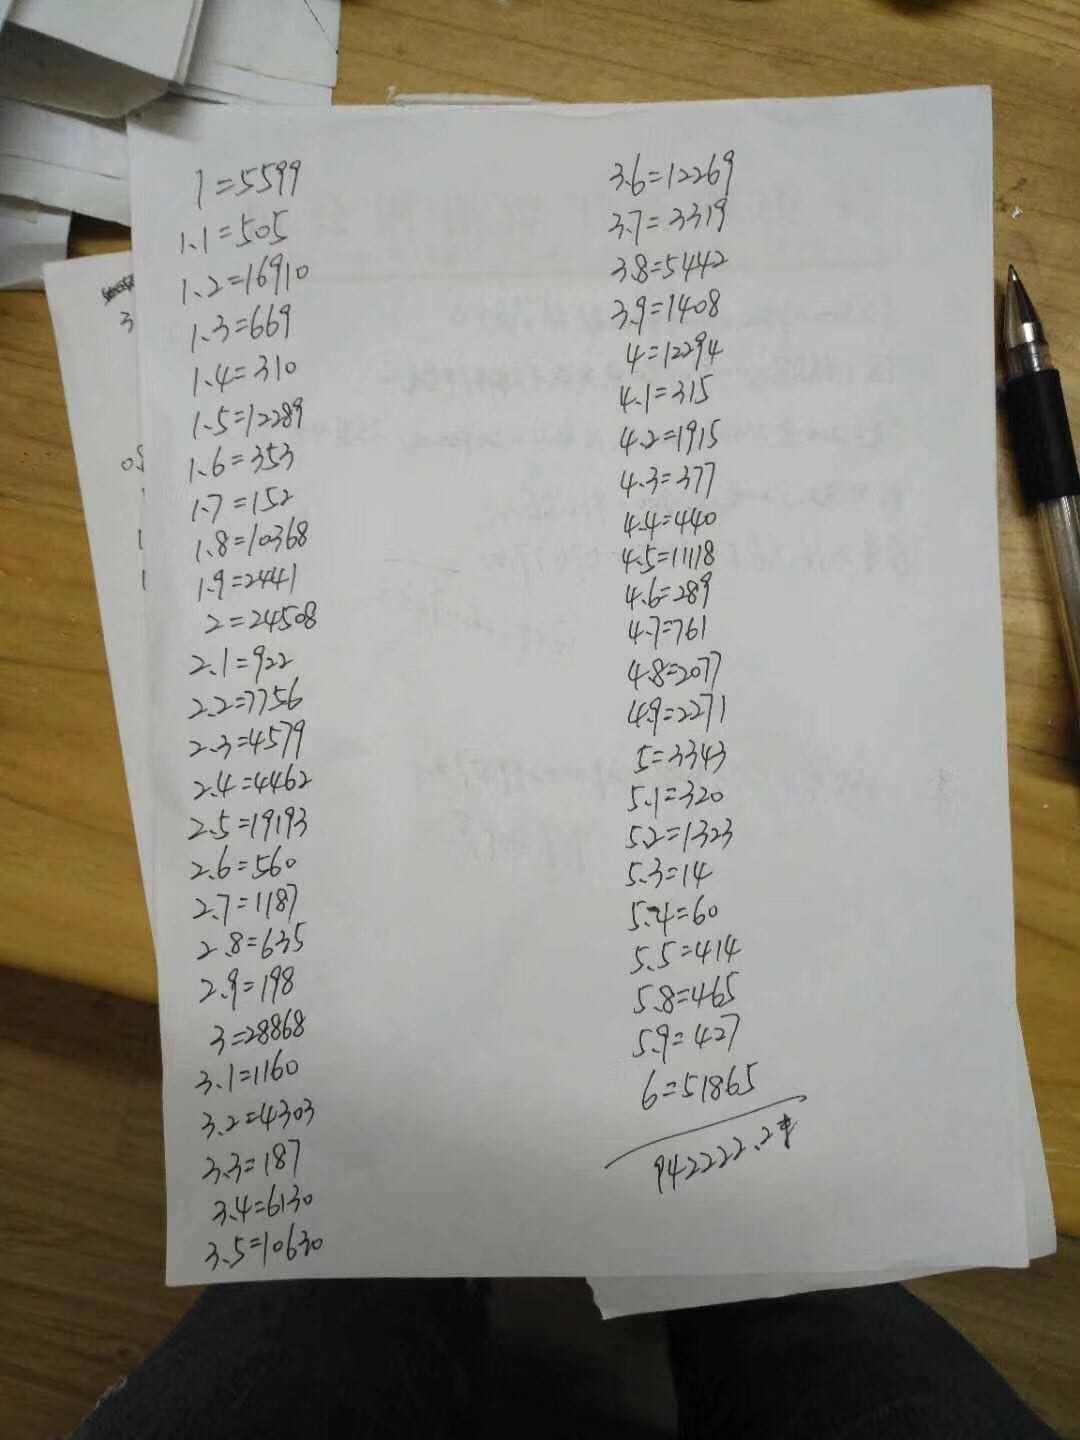 1=5599
1.1=505
1.2=16910
1.3=669
1.4=310
1.5=12289
1.6=353
1.7=152
1.8=10368
1.9=2441
2=24508
2.1=922
2.2=7756
2.3=4579
2.4=4462
2.5=19193
2.6=560
2.7=1187
2.8=635
2.9=198
3=28868
3.1=1160
3.2=4303
3.3=187
3.4=6130
3.5=10630
3.6=12269
3.7=3319
3.8=5442
3.9=1408
4=12294
4.1=315
4.2=1915
4.3=377
4.4=440
4.5=11118
4.6=289
4.7=761
4.8=2077
4.9=2271
5=3343
5.1=320
5.2=1323
5.3=14
5.4=60
5.5=414
5.8=465
5.9=427
6=51865
942222.2